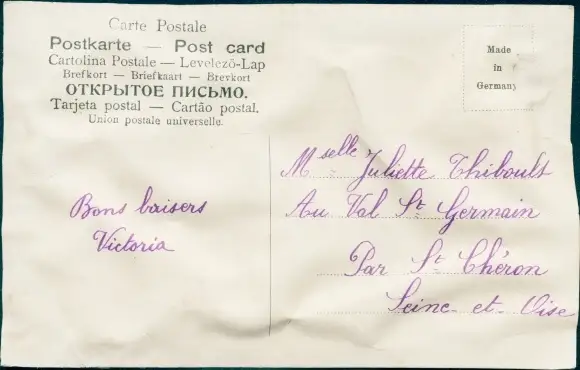 Carte Postale
Postkarte — Post card
Cartolina Postale — Levelező-Lap
Brefkort — Briefkaart — Brevkort
ОТКРЫТОЕ ПИСЬМО.
Tarjeta postal — Cartão postal.
Union postale universelle.
Made
in
Germany
Mselle Juliette Thiboult
Au Val St Germain
Par St Chéron
Seine-et-Oise
Bons baisers
Victoria